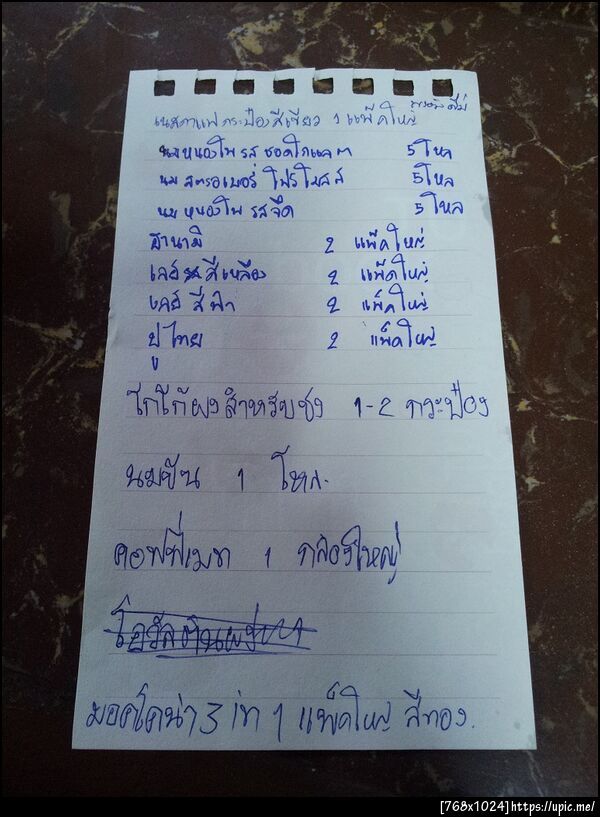 เนสกาแฟกระป๋องสีเขียว 1 แพ็คใหญ่
นมหนองโพ รส ชอคโกแลต 5 โหล
นม สตรอเบอรี่ โฟร์โมสส์ 5 โหล
นมหนองโพ รสจืด 5 โหล
ฮานามิ 2 แพ็คใหญ่
เลย์ สีเหลือง 2 แพ็คใหญ่
เลย์ สีฟ้า 2 แพ็คใหญ่
ปูไทย 2 แพ็คใหญ่
โกโก้ผงสำหรับชง 1-2 กระป๋อง
นมข้น 1 โหล
คอฟฟี่เมท 1 กล่องใหญ่
มอคโคน่า 3 in 1 แพ็คใหญ่ สีทอง.
[768x1024] https://upic.me/